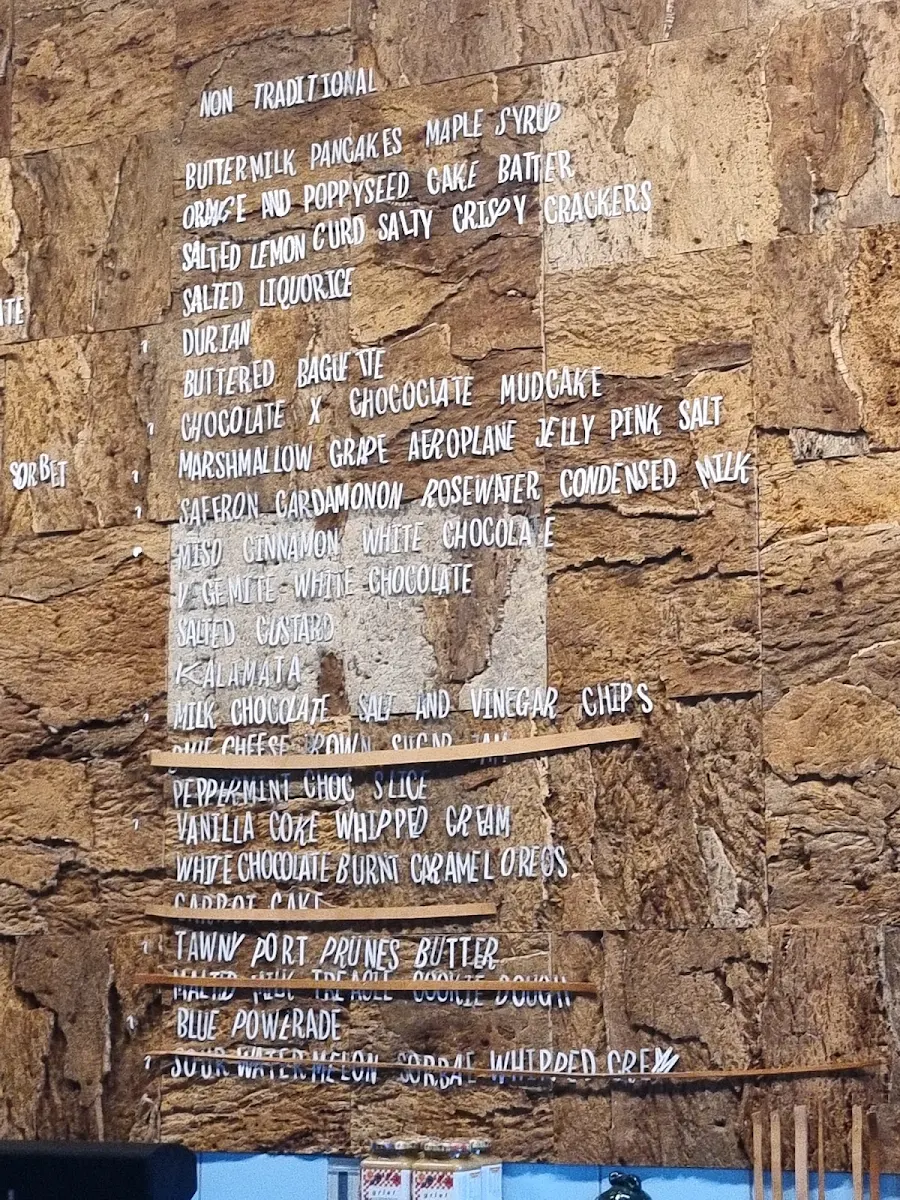 NON TRADITIONAL
BUTTERMILK PANCAKES MAPLE SYRUP
ORANGE AND POPPYSEED CAKE BATTER
SALTED LEMON CURD SALTY CRISPY CRACKERS
SALTED LIQUORICE
DURIAN
BUTTERED BAGUETTE
CHOCOLATE X CHOCOCLATE MUDCAKE
MARSHMALLOW GRAPE AEROPLANE JELLY PINK SALT
SORBET
SAFFRON CARDAMONON ROSEWATER CONDENSED MILK
MISO CINNAMON WHITE CHOCOLA E
V GEMITE WHITE CHOCOLATE
SALTED CUSTARD
KALAMATA
MILK CHOCOLATE SALT AND VINEGAR CHIPS
CHEESE SUGAR
PEPPERMINT CHOC SLICE
VANILLA COKE WHIPPED CREAM
WHITE CHOCOLATE BURNT CARAMEL OREOS
CARROT CAKE
TAWNY PORT PRUNES BUTTER
MALTED MILK TREACLE COOKIE DOUGH
BLUE POWERADE
SOUR WATERMELON SORBAE WHIPPED CREM